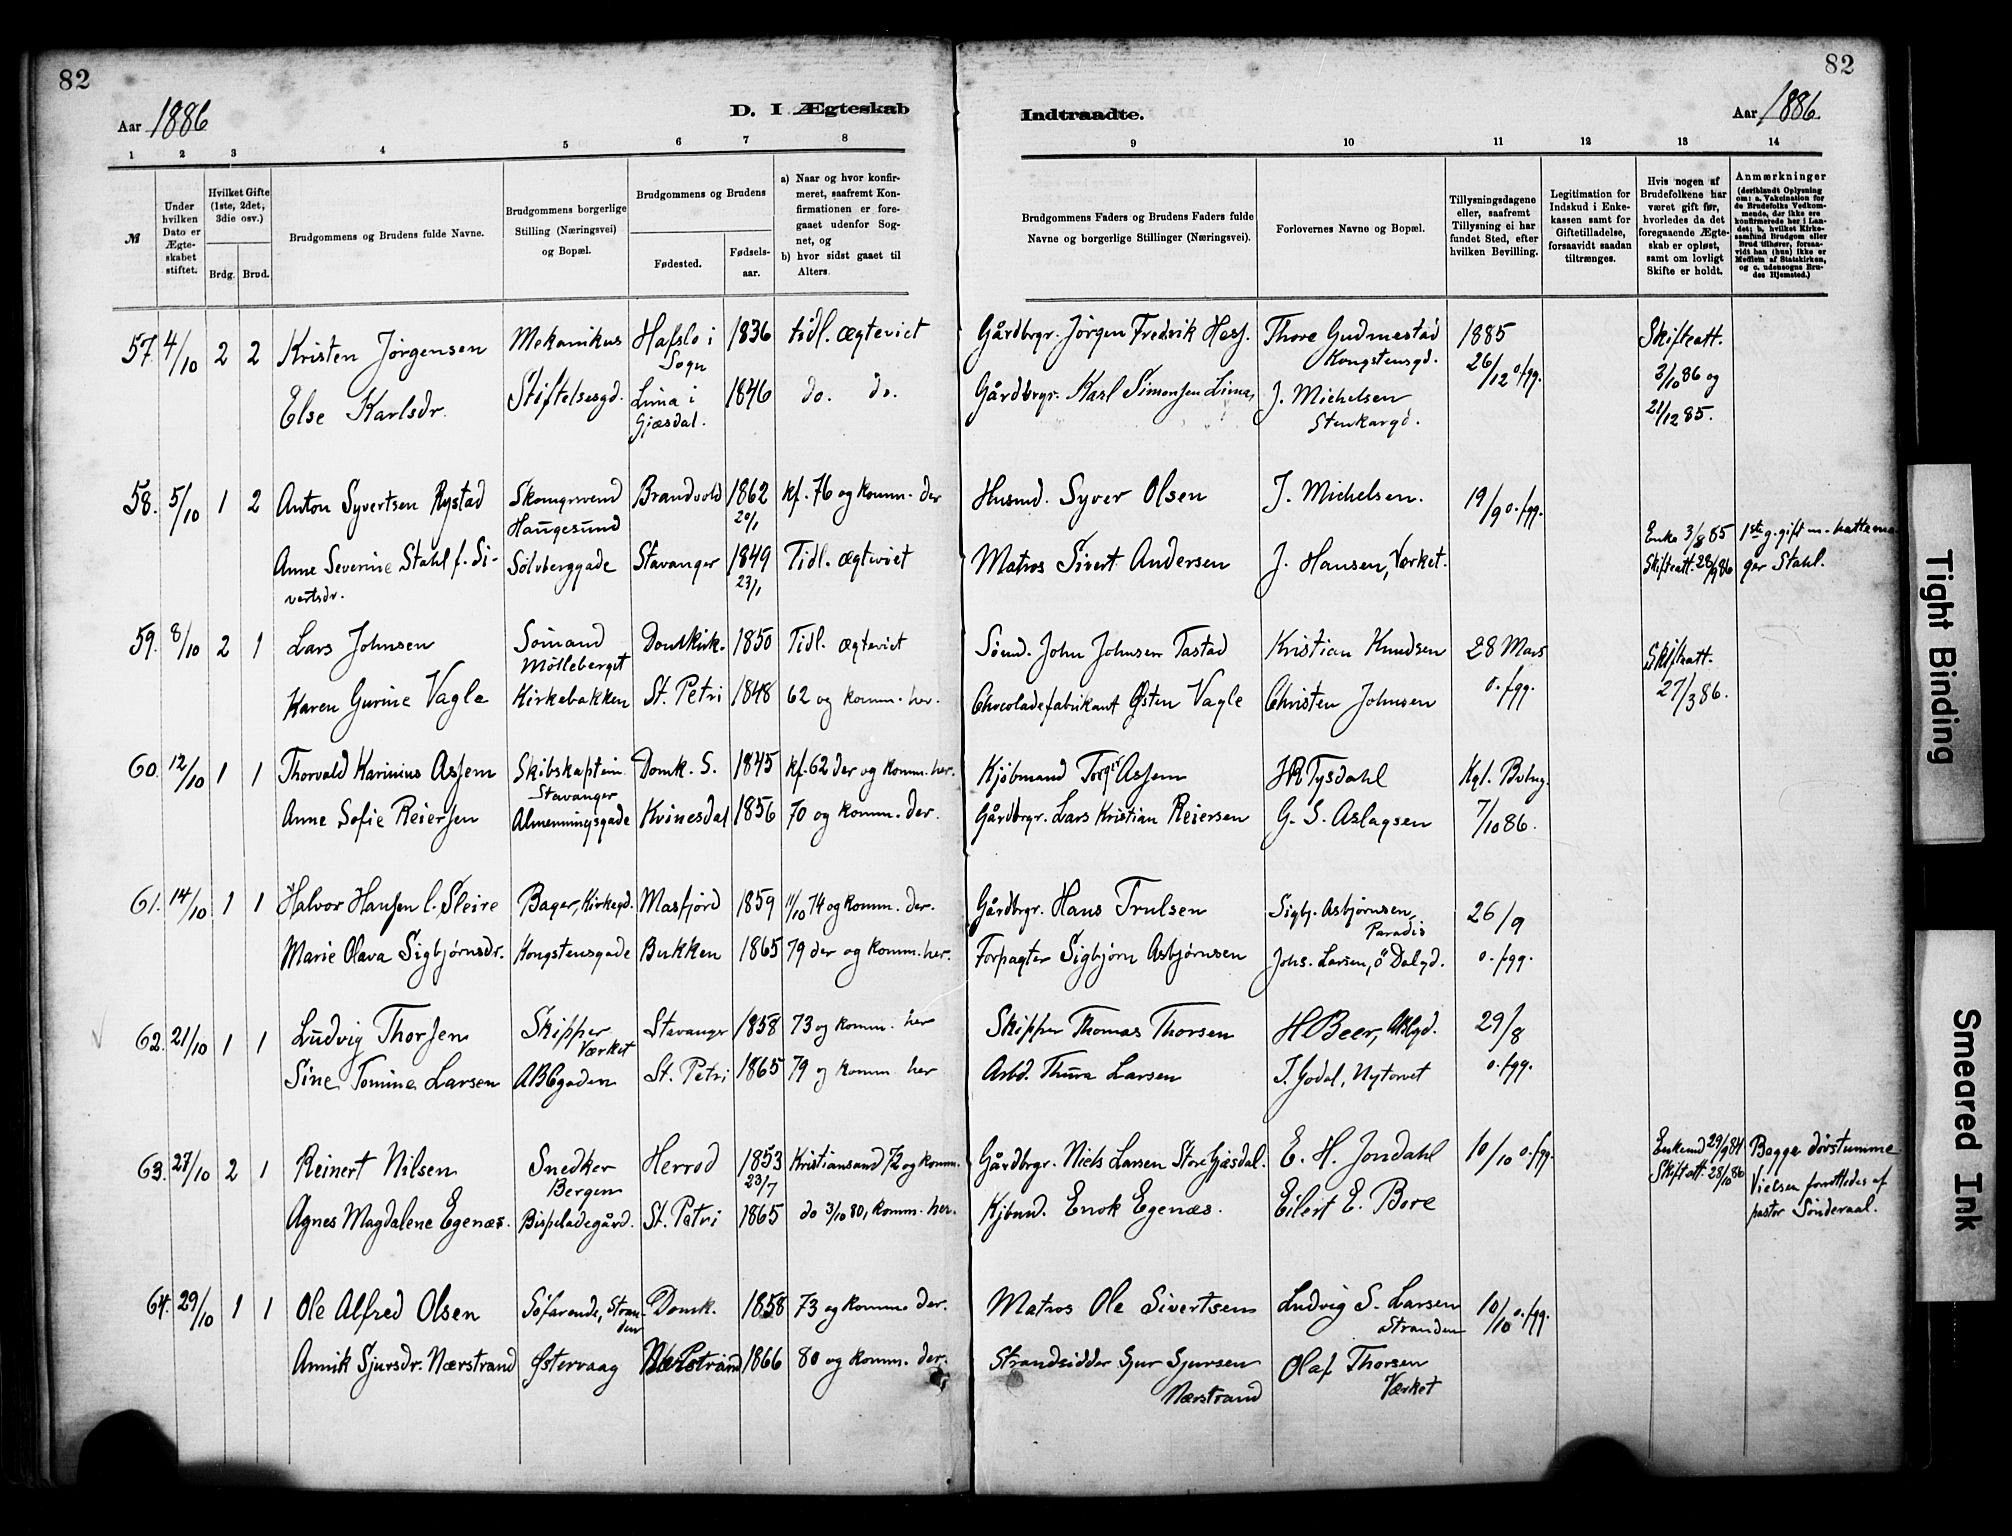 82
82
Aar 1886
D. I Ægteskab
Indtraadte.
Aar 1886.
1 2 3 4 5 6 7 8 9 10 11 12 13 14
№
Under hvilken Dato er Ægteskabet stiftet.
Hvilket Gifte (1ste, 2det, 3die osv.)
Brdg. Brud.
Brudgommens og Brudens fulde Navne.
Brudgommens borgerlige Stilling (Næringsvei) og Bopæl.
Brudgommens og Brudens
Fødested.
Fødselsaar.
a) Naar og hvor konfirmeret, saafremt Konfirmationen er foregaaet udenfor Sognet, og
b) hvor sidst gaaet til Alters.
Brudgommens Faders og Brudens Faders fulde Navne og borgerlige Stillinger (Næringsvei).
Forlovernes Navne og Bopæl.
Tillysningsdagene eller, saafremt Tillysning ei har fundet Sted, efter hvilken Bevilling.
Legitimation for Indskud i Enkekassen samt for Giftetilladelse, forsaavidt saadan tiltrænges.
Hvis nogen af Brudefolkene har været gift før, hvorledes da det foregaaende Ægteskab er opløst, samt om lovligt Skifte er holdt.
Anmærkninger
(deriblandt Oplysning om: a. Vakcination for de Brudefolks Vedkommende, der ikke ere konfirmerede her i Landet; b. hvilket Kirkesamfund Brudgom eller Brud tilhører, forsaavidt han (hun) ikke er Medlem af Statskirken, og c. udensogns Brudes Hjemsted.)
57. 4/10 2 2 Kristen Jörgensen Mekanikus Hafslo i Sogn 1836 tidl. ægteviet Gårdbrgr. Jörgen Fredrik Thore Gudmestad Kongstensgd. 1885 26/12 o. fgg. Skifteatt. 3/10 86 og 21/12 85.
Else Karlsdr. Stiftelsesgd. Lima i Gjæsdal. 1846 do. do. Gårdbrgr. Karl Simonsen Lima, J. Michelsen Stenkargd.
58. 5/10 1 2 Anton Syvertsen Rystad Skomgrsvend Haugesund Brandvold 1862 20/1 kf. 76 og komm. der Husmd. Syver Olsen J. Michelsen. 19/9 o. fgg.
Anne Severine Stahl f. Sivertsdr. Sölvberggade Stavanger 1849 23/1 Tidl. ægteviet Matros Sivert Andersen J. Hansen, Værket. Enke 3/8 85 Skifteatt. 28/9 86 1ste g. gift m. hattemager Stahl.
59. 8/10 2 1 Lars Johnsen Sömand Mölleberget Domkirk. 1850 Tidl. ægteviet Sömd. John Johnsen Tastad Kristian Knudsen 28 Mars o. fgg. Skifteatt. 27/3 86.
Karen Gurine Vagle Kirkebakken St. Petri 1848 62 og komm. her. Chocoladefabrikant Østen Vagle Christen Johnsen
60. 12/10 1 1 Thorvald Karinius Assem Skibskaptein Stavanger Domk. S. 1845 kf. 62 der og komm. her. Kjöbmand Torger Assem HRTysdahl Kgl. Bvlng. 7/10 86.
Anne Sofie Reiersen Almenningsgade Kvinesdal 1856 70 og komm. der. Gårdbrgr. Lars Kristian Reiersen G. S. Aslagsen
61. 14/10 1 1 Halvor Hansen l. Sleire Bager, Kirkegd. Masfjord 1859 11/10 74 og komm. der. Gårdbrgr. Hans Trulsen Sigbj. Asbjørnsen, Paradis 26/9 o. fgg.
Marie Olava Sigbjørnsdr. Kongstensgade Bukken 1865 79 der og komm. her. Forpagter Sigbjørn Asbjørnsen Johs. Larsen, ö Dalgd.
62. 21/10 1 1 Ludvig Thorsen Skipper Værket Stavanger 1858 73 og komm. her Skipper Thomas Thorsen H Beer, ABCgd. 29/8 o. fgg.
Sine Tomine Larsen ABCgaden St. Petri 1865 79 og komm. her Arbd. Thura Larsen T. Godal, Nytorvet
63. 27/10 2 1 Reinert Nilsen Snedker Bergen Herrod 1853 23/7 Kristiansand 72 og komm. Gårdbrgr. Niels Larsen Store Gjæsdal. E. H. Jondahl 10/10 o. fgg. Enkemd 29/9 84 Skifteatt. 28/10 86 Begge dövstumme Vielsen forrettedes af pastor Sönderaal.
Agnes Magdalene Egenæs. Bispeladegård. St. Petri 1865 do 3/10 80, komm. her. Kjbmd. Enok Egenæs. Eilert E. Bore
64. 29/10 1 1 Ole Alfred Olsen Söfarende, Stranden Domk. 1858 73 og komm. der. Matros Ole Sivertsen Ludvig S. Larsen Stranden 10/10 o. fgg.
Annik Sjursdr. Nærstrand Østervaag Nærstrand 1866 80 og komm. der. Strandsidder Sjur Sjursen Nærstrand Olaf Thorsen Værket
Tight Binding
Smeared Ink